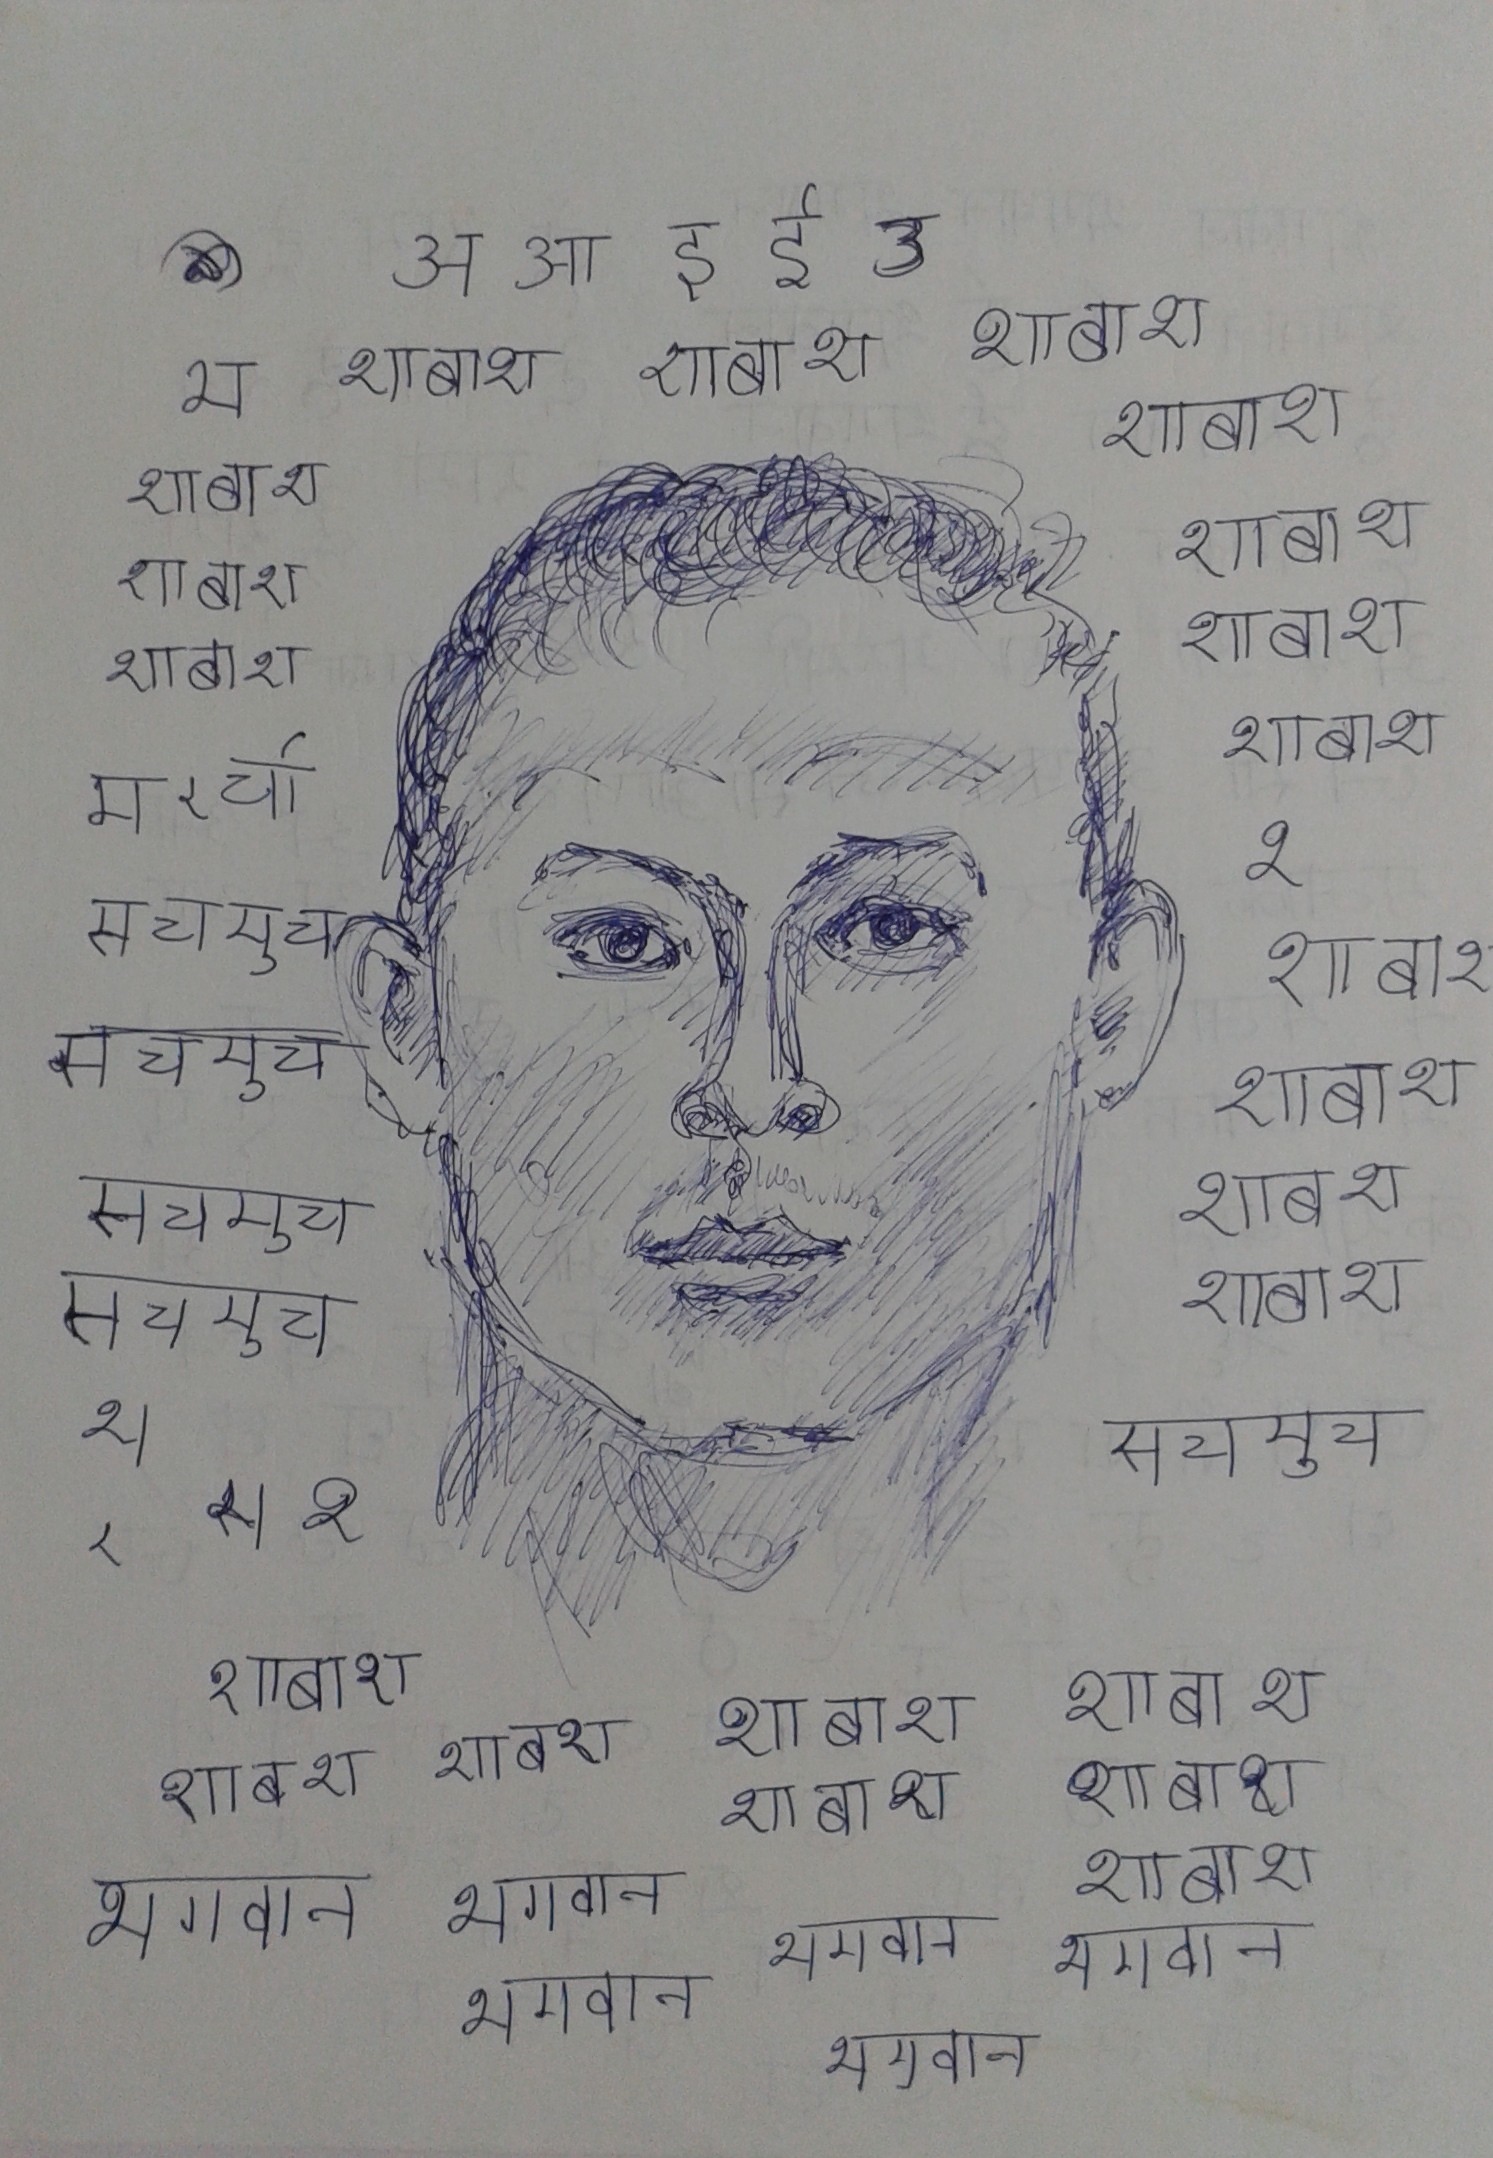 अ आ इ ई उ
भ शाबाश शाबाश शाबाश
शाबाश
शाबाश
शाबाश
शाबाश
शाबाश
शाबाश
शाबाश
सचमुच
सचमुच
सचमुच
सचमुच
श
श
शाबाश
शाबाश
शाबश
शाबाश
सचमुच
शाबाश
शाबश शाबश शाबाश शाबाश
शाबाश शाबाश
शाबाश
भगवान भगवान भगवान भगवान
भगवान
भगवान